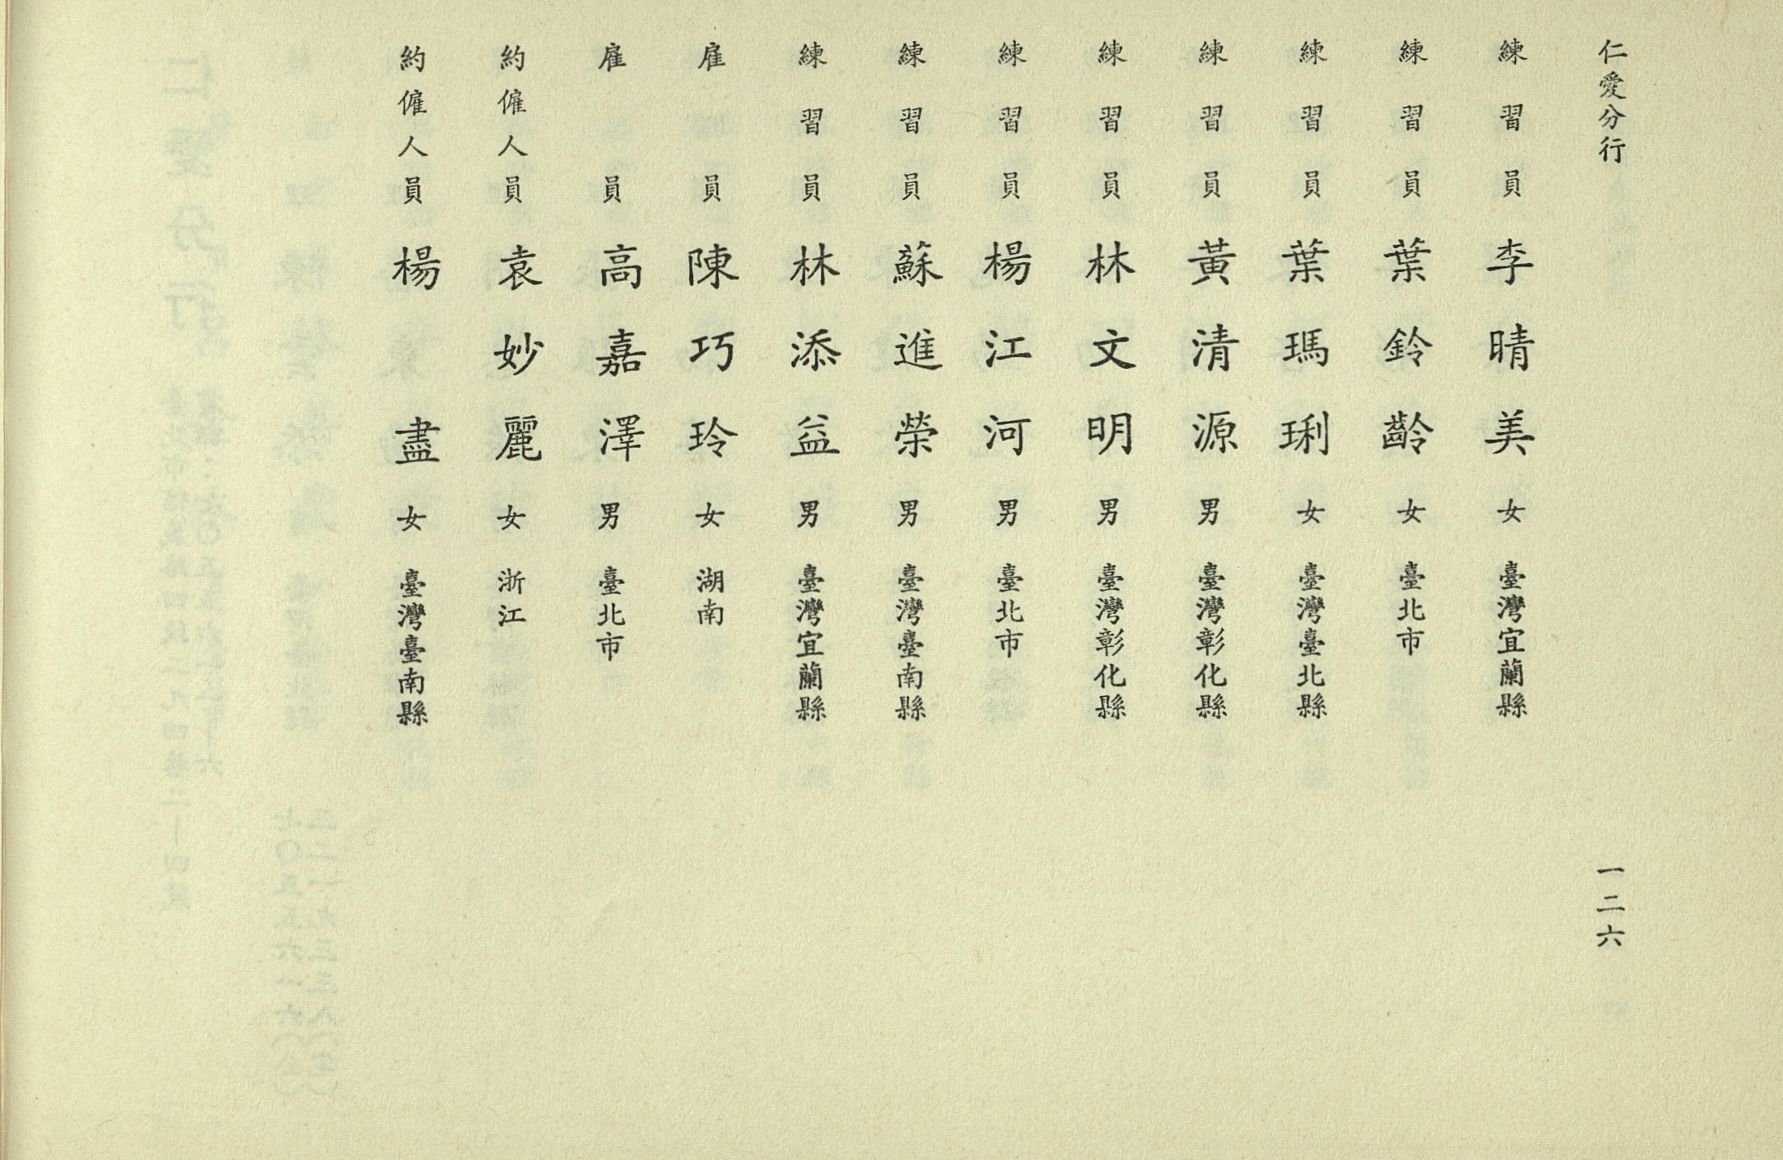 仁愛分行 一二六
練習員 李晴美 女 臺灣宜蘭縣
練習員 葉鈴齡 女 臺北市
練習員 葉瑪琍 女 臺灣臺北縣
練習員 黃清源 男 臺灣彰化縣
練習員 林文明 男 臺灣彰化縣
練習員 楊江河 男 臺北市
練習員 蘇進榮 男 臺灣臺南縣
練習員 林添益 男 臺灣宜蘭縣
雇員 陳巧玲 女 湖南
雇員 高嘉澤 男 臺北市
約僱人員 袁妙麗 女 浙江
約僱人員 楊盡 女 臺灣臺南縣